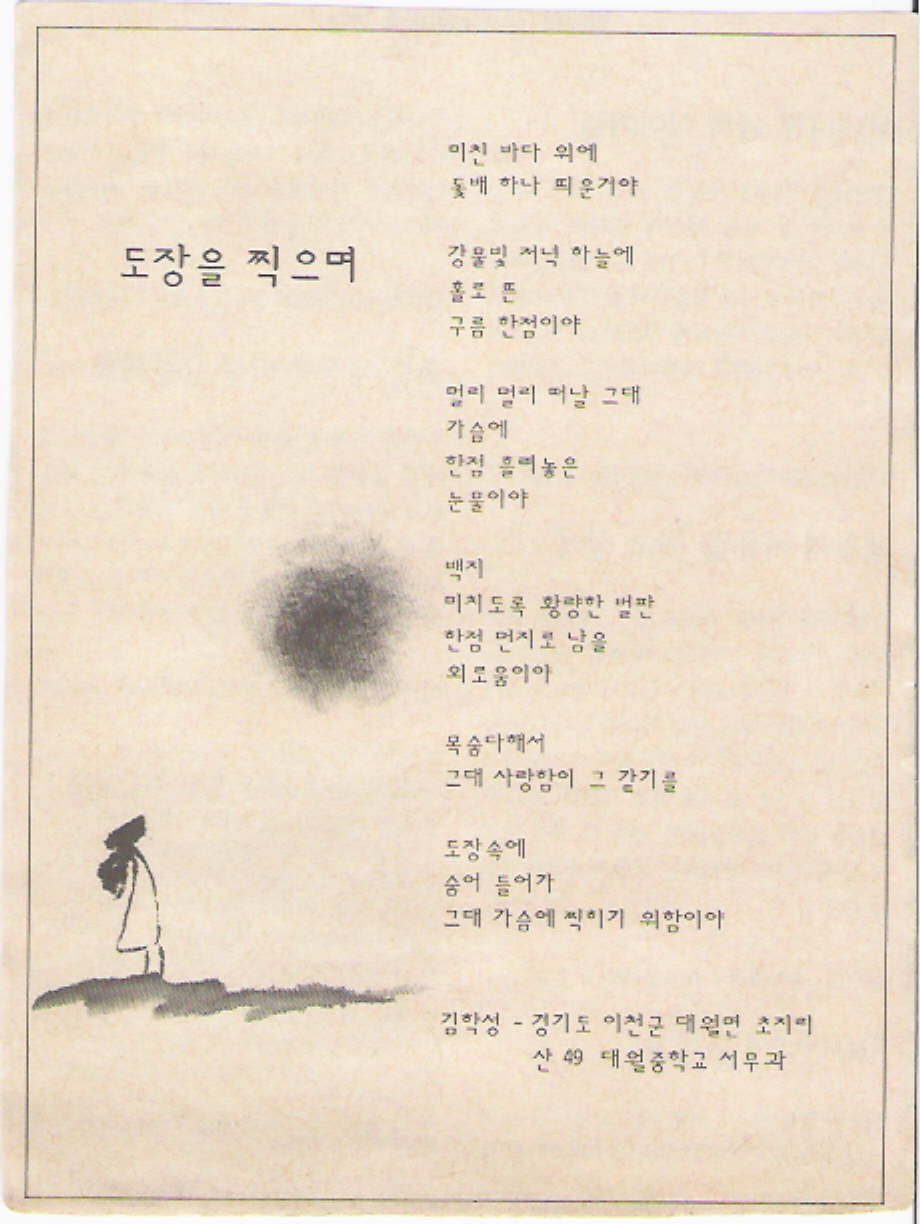 도장을 찍으며
미친 바다 위에
돛배 하나 띄운거야
강물빛 저녁 하늘에
홀로 뜬
구름 한점이야
멀리 멀리 떠날 그대
가슴에
한점 흘려놓은
눈물이야
백지
미치도록 황량한 벌판
한점 먼지로 남을
외로움이야
목숨다해서
그대 사랑함이 그 같기를
도장속에
숨어 들어가
그대 가슴에 찍히기 위함이야
김학성 - 경기도 이천군 대월면 초지리
산 49 대월중학교 서무과